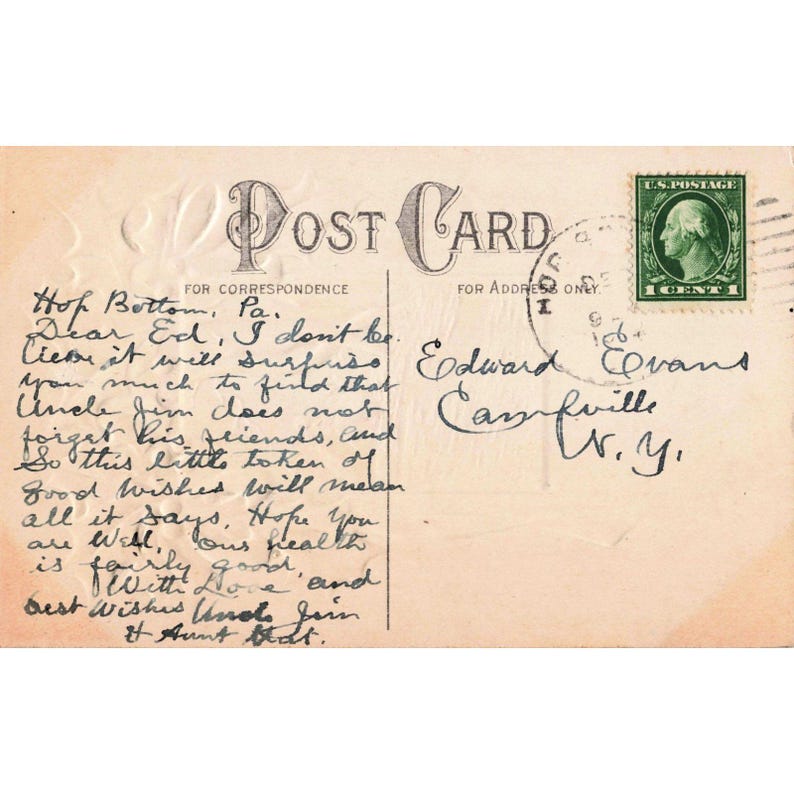 POST CARD
FOR CORRESPONDENCE
FOR ADDRESS ONLY.
U.S. POSTAGE
1 CENT 1
HOP
Hop Bottom, Pa.
Dear Ed, I don't be
lieve it will surprise
you much to find that
Uncle Jim does not
forget his friends, and
So this little token of
good wishes will mean
all it says. Hope you
are Well. Our health
is fairly good.
With Love and
best Wishes Uncle Jim
& Aunt
Edward Evans
Campville
N. Y.